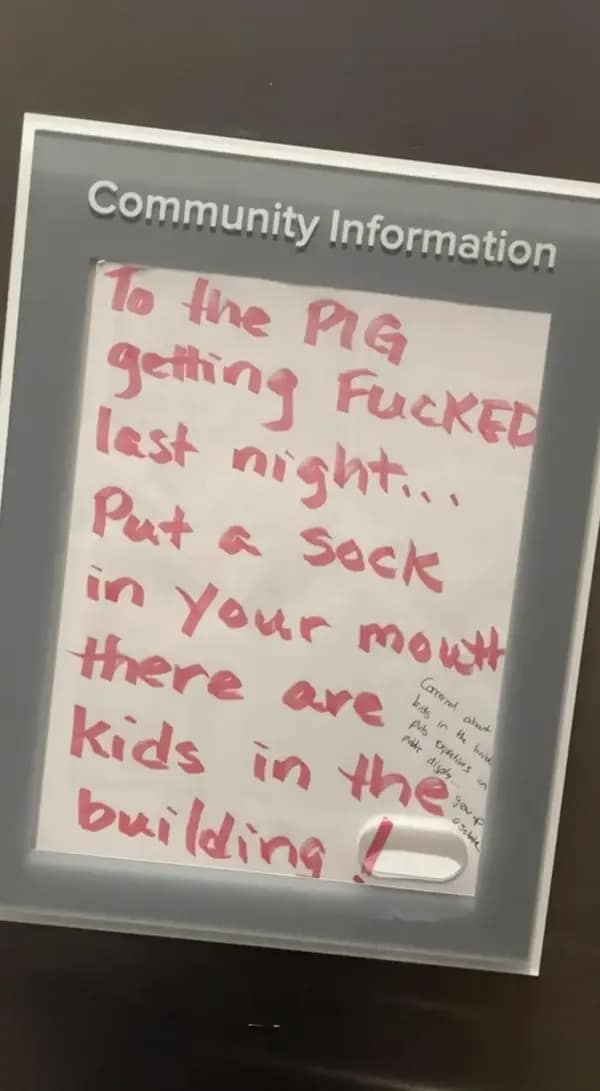 Community Information
To the PIG
getting FUCKED
last night...
Put a sock
in your mouth
there are
kids in the
building!
about
kids in the
puts expletives on
public display...
grow up
asshole